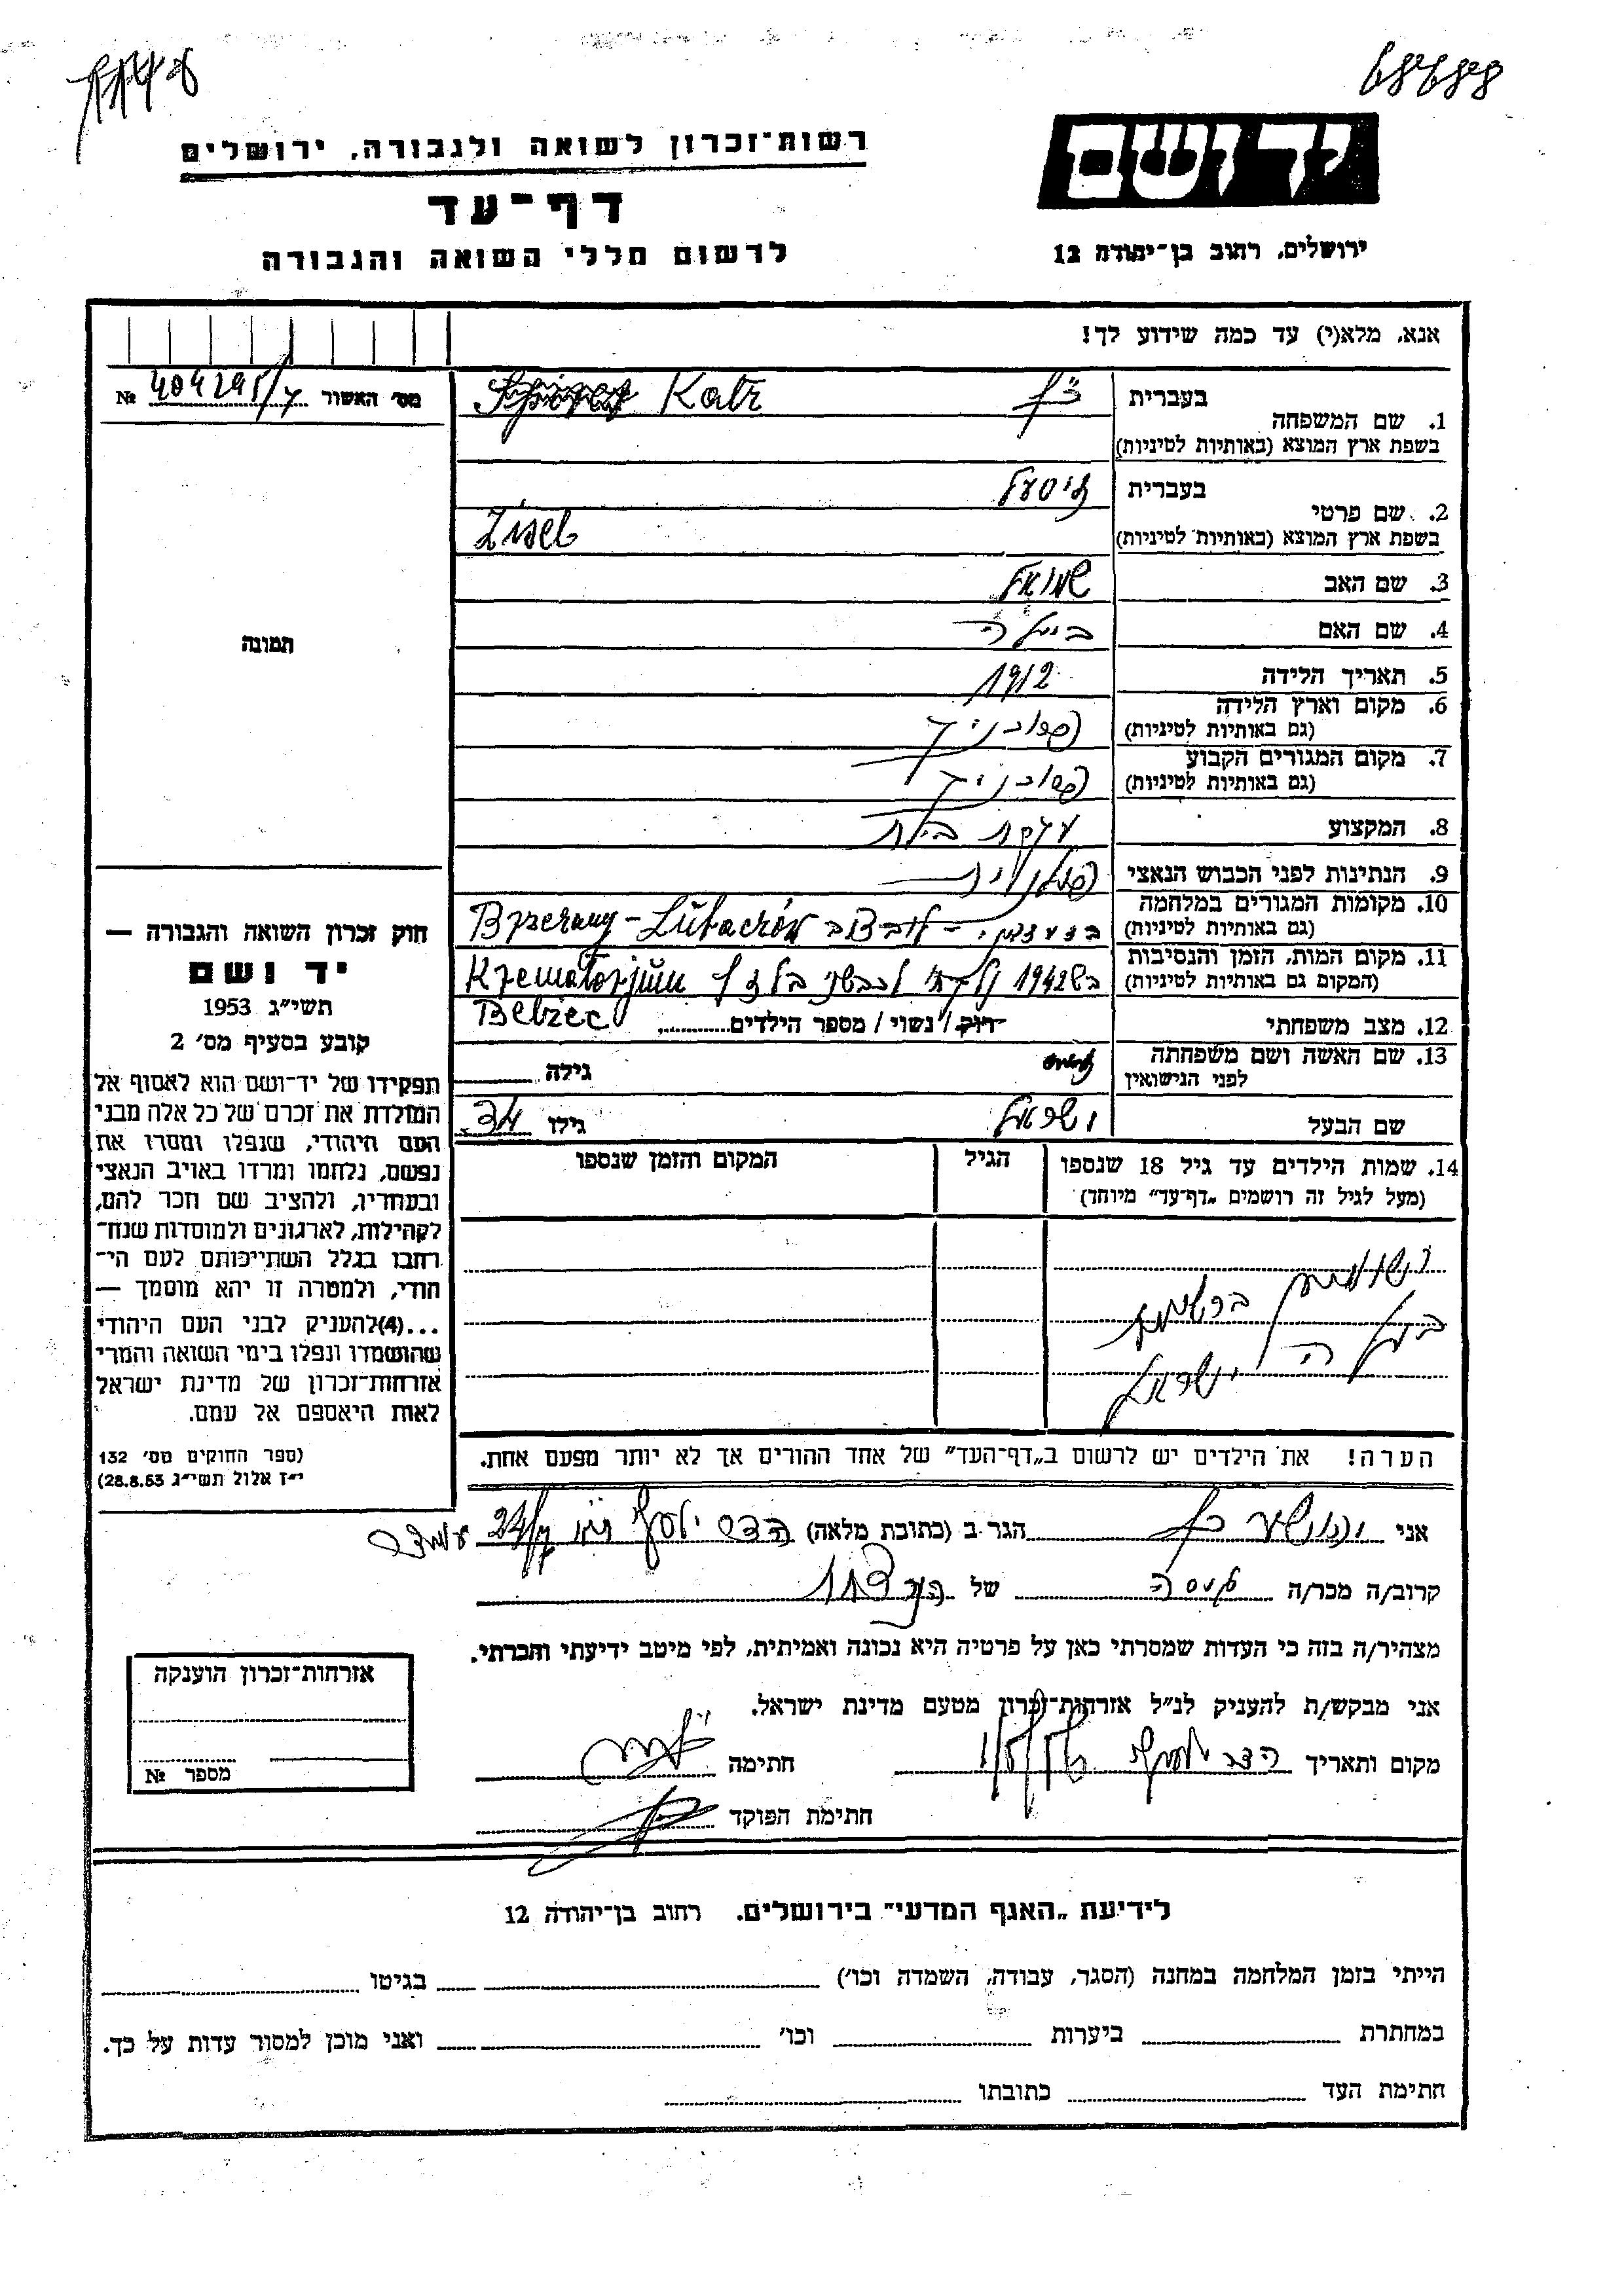 רשות־זכרון לשואה ולגבורה, ירושלים
דף־עד
לרשום חללי השואה והגבורה
יד ושם
ירושלים, רחוב בן־יהודה 12
אנא, מלא(י) עד כמה שידוע לך!
מס׳ האשור № 404295/7
תמונה
1. שם המשפחה בעברית כץ
בשפת ארץ המוצא (באותיות לטיניות) Katz
2. שם פרטי בעברית זיסעל
בשפת ארץ המוצא (באותיות לטיניות) Zisel
3. שם האב שמואל
4. שם האם ביילה
5. תאריך הלידה 1912
6. מקום וארץ הלידה
(גם באותיות לטיניות)
7. מקום המגורים הקבוע
(גם באותיות לטיניות)
8. המקצוע עקרת בית
9. הנתינות לפני הכבוש הנאצי פולנית
10. מקומות המגורים במלחמה
(גם באותיות לטיניות) Lubaczów
11. מקום המות, הזמן והנסיבות
(המקום גם באותיות לטיניות) בש 1942 Krematorjum
Bełżec
12. מצב משפחתי רווק / נשוי / מספר הילדים
13. שם האשה ושם משפחתה
לפני הנישואין גילה
שם הבעל ישראל גילו 34
14. שמות הילדים עד גיל 18 שנספו
(מעל לגיל זה רושמים „דף־עד״ מיוחד)
הגיל
המקום והזמן שנספו
ברשימת
ישראל
הערה! את הילדים יש לרשום ב„דף־העד״ של אחד ההורים אך לא יותר מפעם אחת.
חוק זכרון השואה והגבורה —
יד ושם
תשי״ג 1953
קובע בסעיף מס׳ 2
תפקידו של יד־ושם הוא לאסוף אל
המולדת את זכרם של כל אלה מבני
העם היהודי, שנפלו ומסרו את
נפשם, נלחמו ומרדו באויב הנאצי
ובעוזריו, ולהציב שם וזכר להם,
לקהילות, לארגונים ולמוסדות שנח־
רבו בגלל השתייכותם לעם הי־
הודי, ולמטרה זו יהא מוסמך —
...(4)להעניק לבני העם היהודי
שהושמדו ונפלו בימי השואה והמרי
אזרחות־זכרון של מדינת ישראל
לאות היאספם אל עמם.
(ספר החוקים מס׳ 132
י״ז אלול תשי״ג 28.8.53)
אני יהושע כץ הגר ב (כתובת מלאה) הדר יוסף
קרוב/ה מכר/ה גיסה של
מצהיר/ה בזה כי העדות שמסרתי כאן על פרטיה היא נכונה ואמיתית, לפי מיטב ידיעתי והכרתי.
אני מבקש/ת להעניק לנ״ל אזרחות־זכרון מטעם מדינת ישראל.
מקום ותאריך הדר יוסף חתימה
חתימת הפוקד
אזרחות־זכרון הוענקה
מספר №
לידיעת „האגף המדעי״ בירושלים. רחוב בן־יהודה 12
הייתי בזמן המלחמה במחנה (הסגר, עבודה, השמדה וכו׳) בגיטו
במחתרת ביערות וכו׳ ואני מוכן למסור עדות על כך.
חתימת העד כתובתו